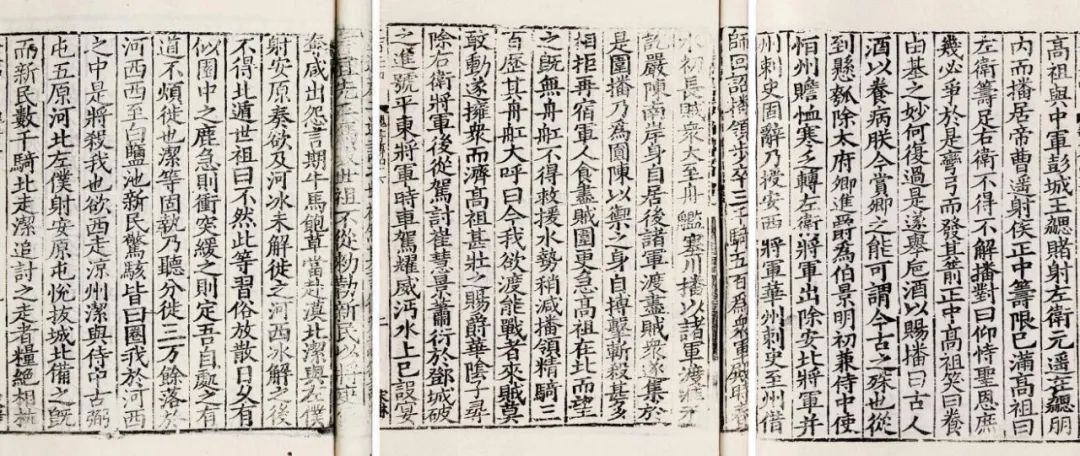 泰咸出怨言期牛馬飽草當赴漠北潔與左僕
射安原奏欲及河冰未解徙之河西冰解之後
不得北遁世祖曰不然此等習俗放散日久有
似園中之鹿急則衝突緩之則定吾自處之有
道不煩徙也潔等固執乃聽分徙三万餘落於
河西西至白鹽池新民驚駭皆曰圈我於河西
之中是將殺我也欲西走涼州潔與侍中古弼
屯五原河北左僕射安原屯悅拔城北備之既
而新民數千騎北走潔追討之走者糧絕相枕
師回詔播領步卒三千騎五百為衆軍殿時春
水初長賊衆大至舟艦塞川播以諸軍渡淮未
訖嚴陳南岸身自居後諸軍渡盡賊衆遂集於
是圍播乃為圓陳以禦之身自搏擊斬殺甚多
相拒再宿軍人食盡賊圍更急高祖在北而望
之既無舟舡不得救援水勢稍減播領精騎三
百歷其舟舡大呼曰今我欲渡能戰者來賊莫
敢動遂擁衆而濟高祖甚壯之賜爵華陰子尋
除右衛將軍後從駕討崔慧景蕭衍於鄧城破
之進號平東將軍時車駕耀威沔水上巳設宴
高祖與中軍彭城王勰賭射左衛元遥在勰朋
內而播居帝曹遥射侯正中籌限已滿高祖曰
左衛籌足右衛不得不解播對曰仰恃聖恩庶
幾必爭於是彎弓而發其箭正中高祖笑曰養
由基之妙何復過是遂舉卮酒以賜播曰古人
酒以養病朕今賞卿之能可謂今古之殊也從
到懸瓠除太府卿進爵為伯景明初兼侍中使
恒州贍恤寒乏轉左衛將軍出除安北將軍并
州刺史固辭乃授安西將軍華州刺史至州借